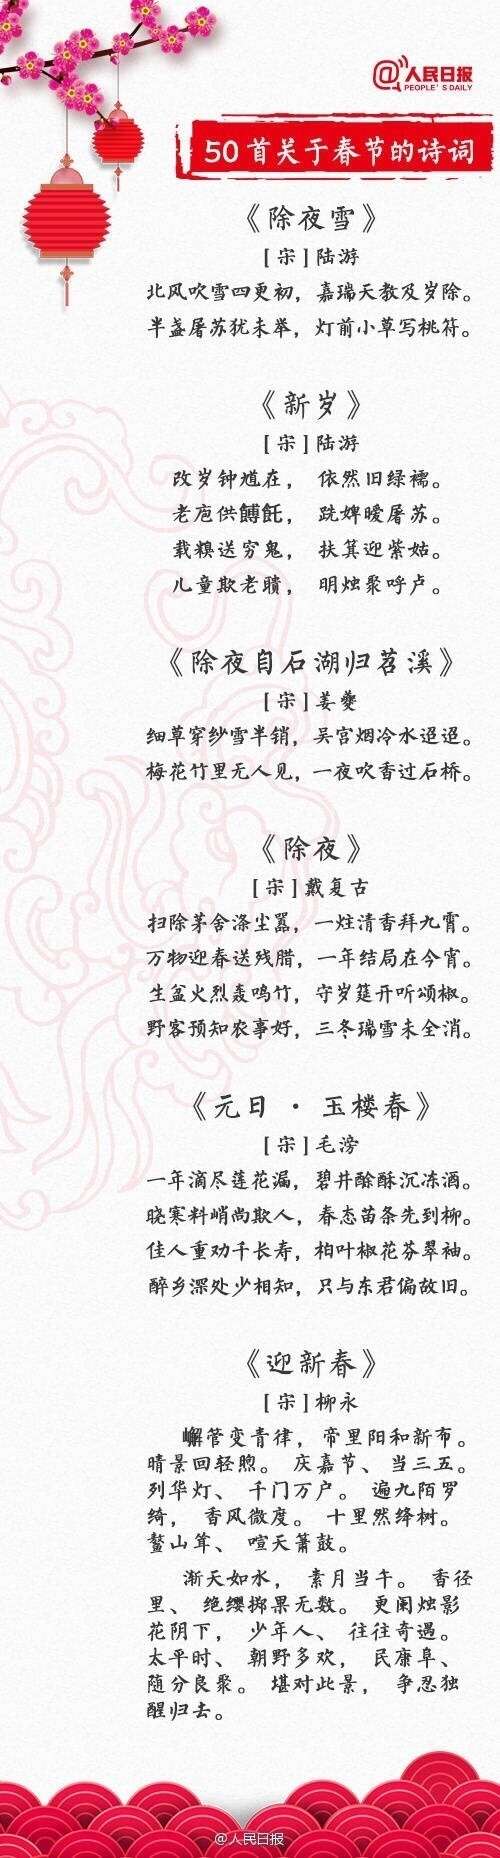 @人民日报
PEOPLE'S DAILY
50首关于春节的诗词
《除夜雪》
[宋]陆游
北风吹雪四更初，嘉瑞天教及岁除。
半盏屠苏犹未举，灯前小草写桃符。
《新岁》
[宋]陆游
改岁钟馗在， 依然旧绿襦。
老庖供餺飥， 跣婢暖屠苏。
载糗送穷鬼， 扶箕迎紫姑。
儿童欺老聩， 明烛聚呼卢。
《除夜自石湖归苕溪》
[宋]姜夔
细草穿沙雪半销，吴宫烟冷水迢迢。
梅花竹里无人见，一夜吹香过石桥。
《除夜》
[宋]戴复古
扫除茅舍涤尘嚣，一炷清香拜九霄。
万物迎春送残腊，一年结局在今宵。
生盆火烈轰鸣竹，守岁筵开听颂椒。
野客预知农事好，三冬瑞雪未全消。
《元日 · 玉楼春》
[宋]毛滂
一年滴尽莲花漏，碧井酴酥沉冻酒。
晓寒料峭尚欺人，春态苗条先到柳。
佳人重劝千长寿，柏叶椒花芬翠袖。
醉乡深处少相知，只与东君偏故旧。
《迎新春》
[宋]柳永
嶰管变青律，帝里阳和新布。
晴景回轻煦。 庆嘉节、当三五。
列华灯、 千门万户。 遍九陌罗
绮， 香风微度。 十里然绛树。
鳌山耸、 喧天箫鼓。
渐天如水， 素月当午。 香径
里、 绝缨掷果无数。 更阑烛影
花阴下， 少年人、 往往奇遇。
太平时、 朝野多欢， 民康阜、
随分良聚。 堪对此景， 争忍独
醒归去。
@人民日报